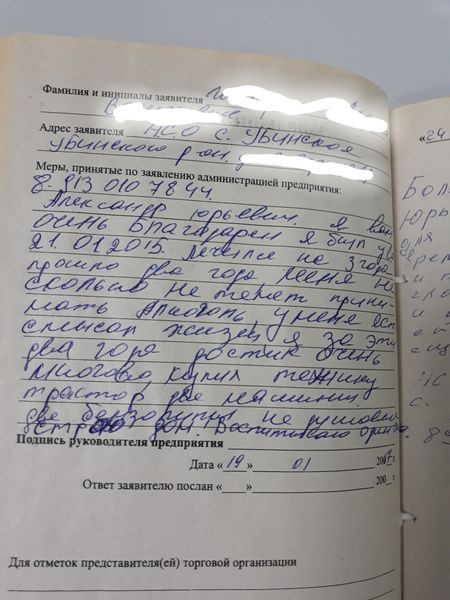 Фамилия и инициалы заявителя
Адрес заявителя НСО с. Убинское
Убинского рон.
Меры, принятые по заявлению администрацией предприятия:
8. 913 010 78 44.
Александр юрьевич. я вам
очень благадарен я был у вас
21.01.2015. лечился на 3 года
прошло два года меня не
сколько не тенет прини-
мать Алкоголь у меня ест
смысал жизни я за эти
два года достик очень
многова купил технику
трактор две машины
две бензопилы не
дом. Воспитываю
Подпись руководителя предприятия
Дата « 19 » 01 200 г.
Ответ заявителю послан «   » 200 г.
Для отметок представителя(ей) торговой организации
«24
Бол
Юрь
для
НС
с.